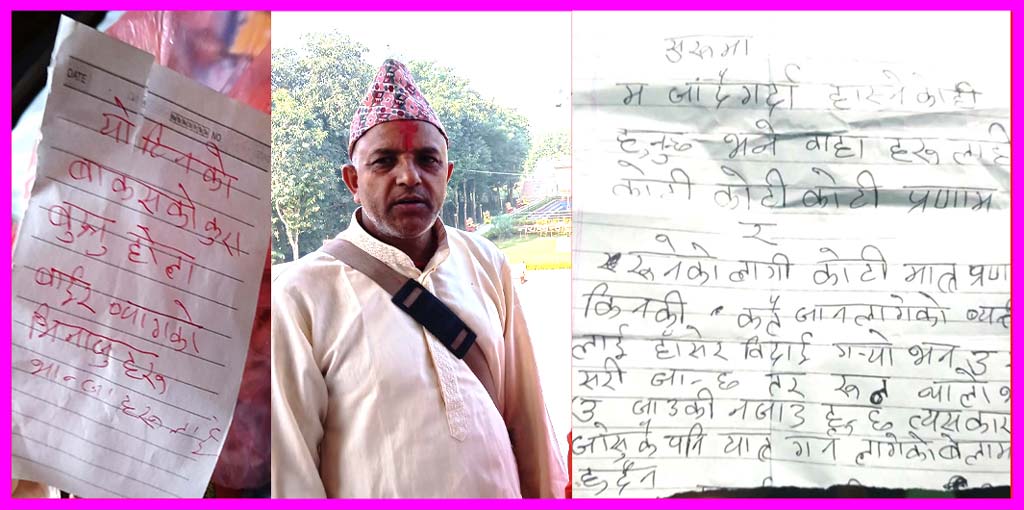 DATE
NO
यो टिनको
बाकसको कुरा
बुझ्नु होला
बाहिर ब्यागको
भान्जा हरूलाई
सुरूमा
म जांदै गर्दा हास्ने कोही
हुनुहुन्छ भने वाहा हरू लाई
कोटी कोटी कोटी प्रणाम
र
रूनेको लागी कोटी मात्र प्रणा
किनकी कतै जान लागेको
लाई हाँसेर विदाई गर्‍यो भने उ
सरी जान्छ तर रूने वाला
उ जाउकी नजाउ हुन्छ त्यसकार
जोसुकै पनि यात्रा गर्न लागेको बेलाम
हुदैन